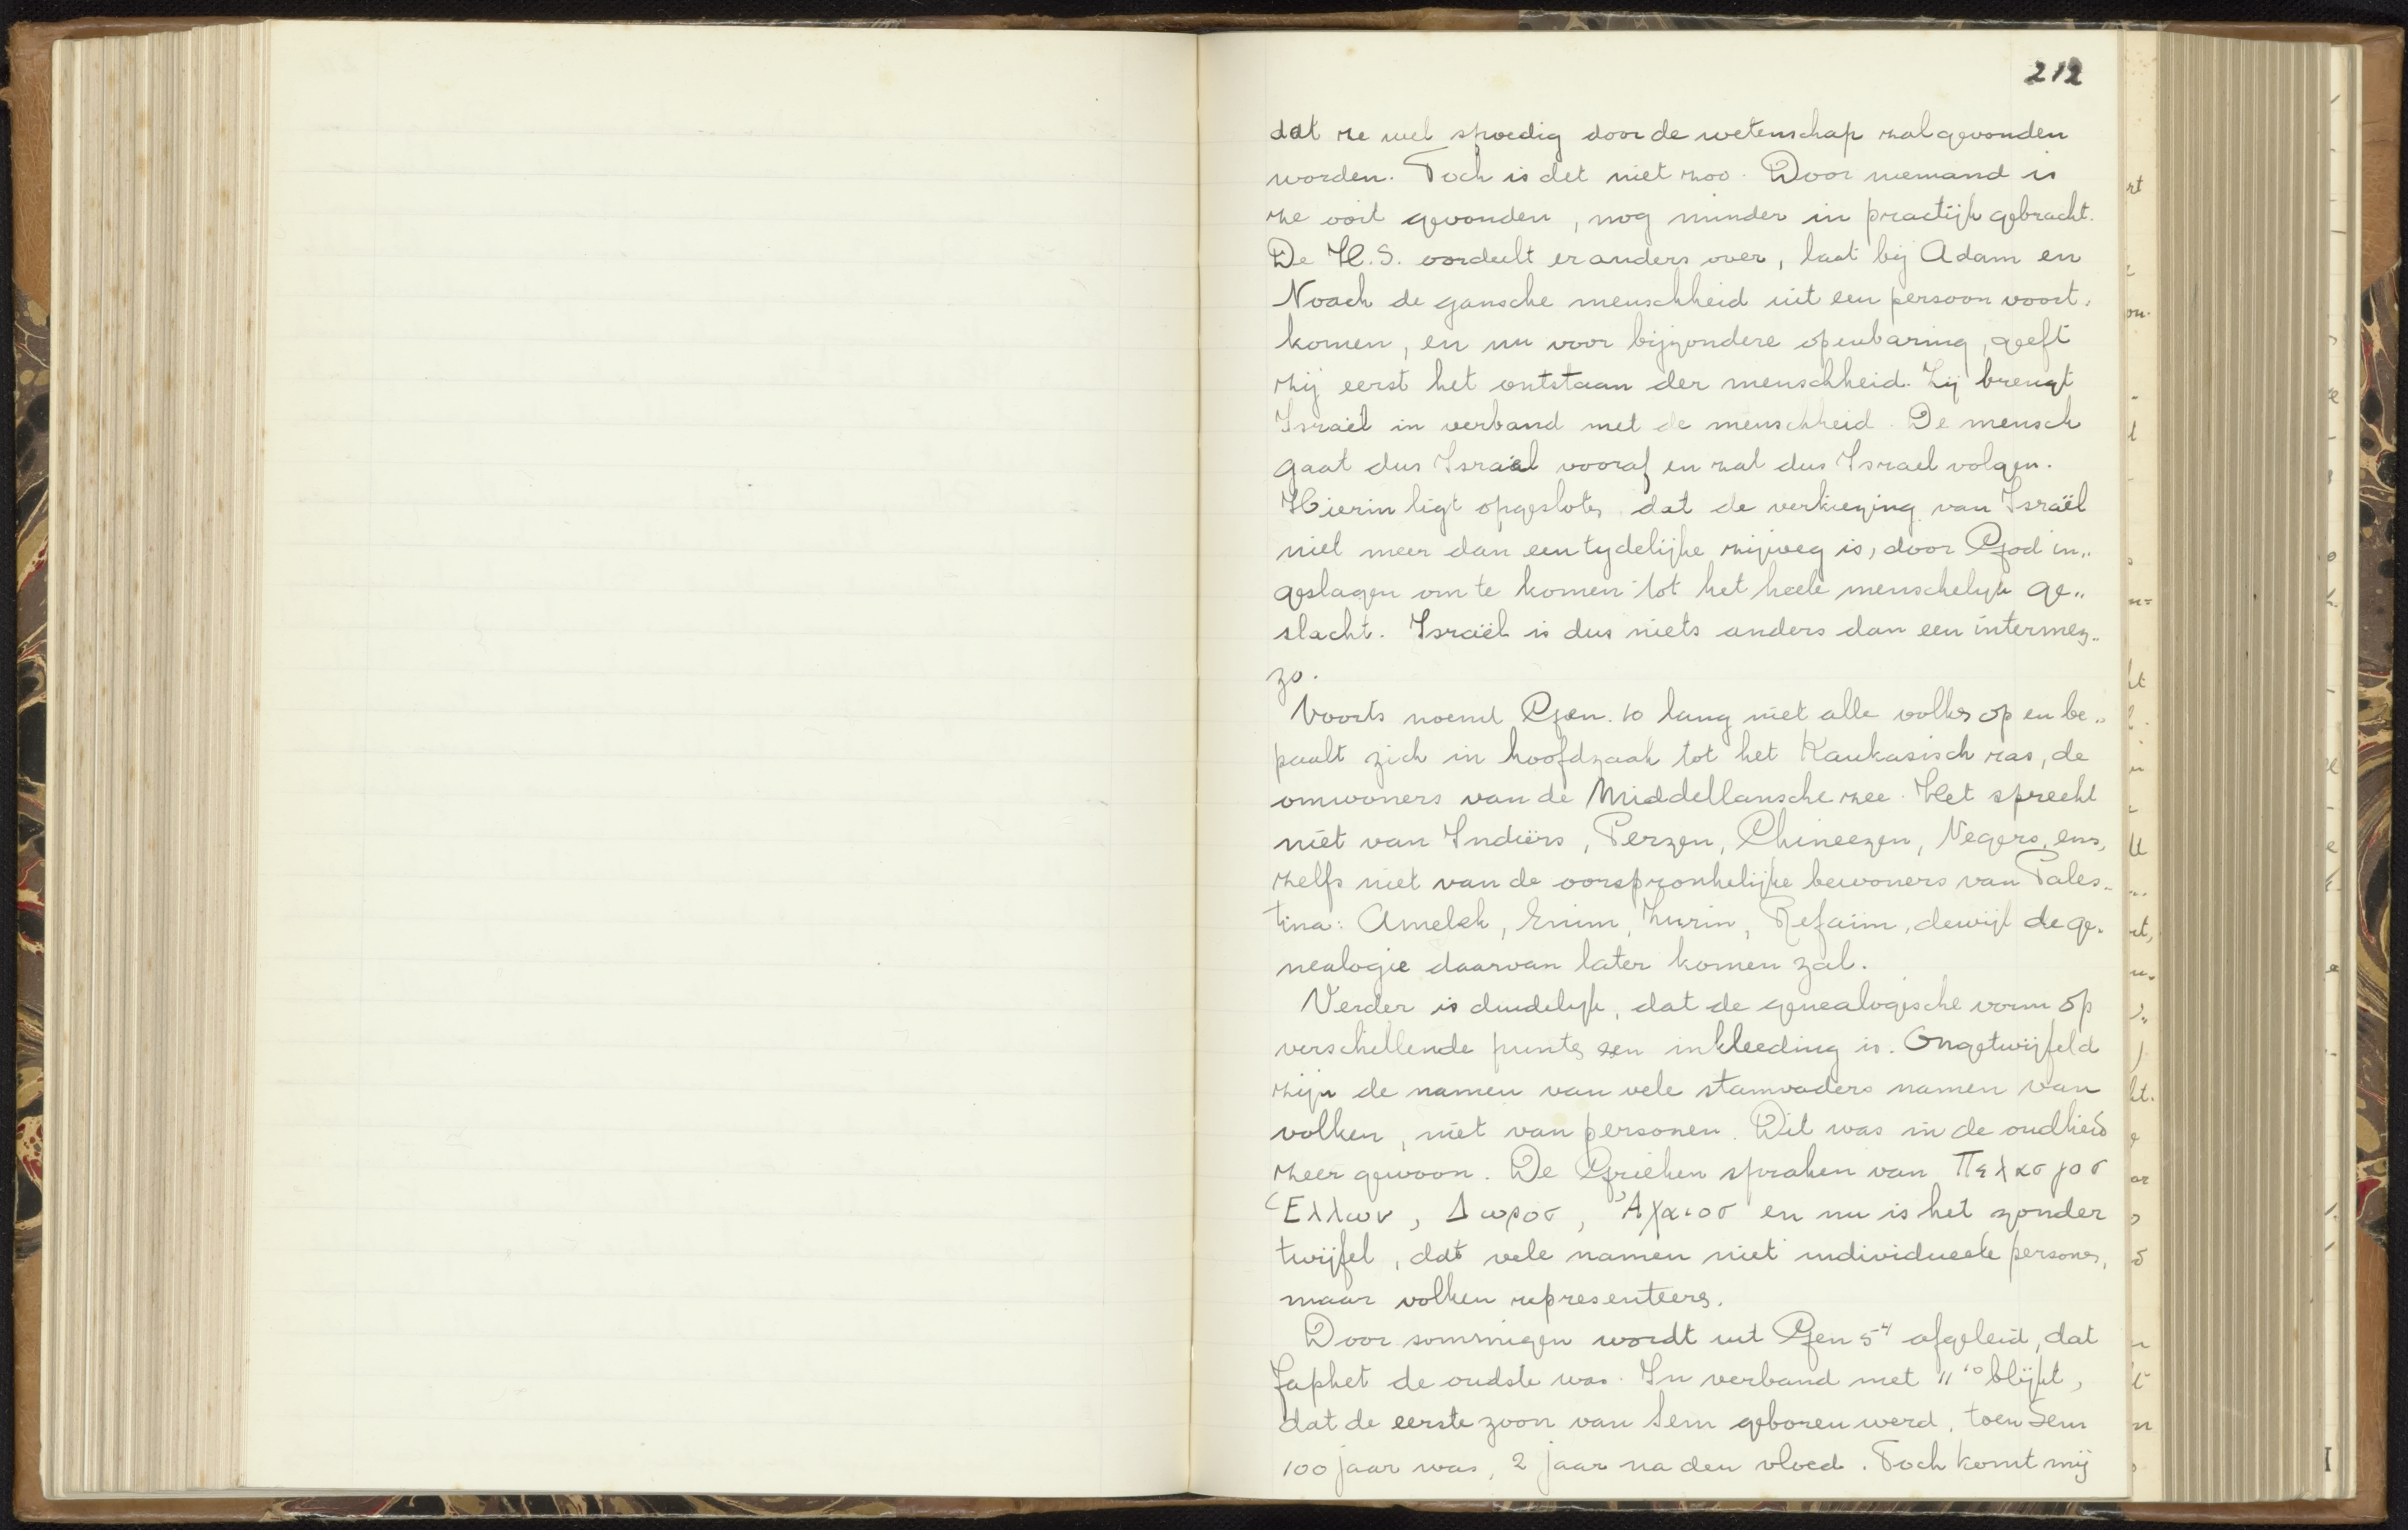 212
dat ze wel spoedig door de wetenschap zal gevonden
worden. Toch is det niet zoo. Door niemand is
ze ooit gevonden, nog minder in practijk gebracht.
De H.S. oordeelt er anders over, laat bij Adam en
Noach de gansche menschheid uit een persoon voort-
komen, en nu voor bijzondere openbaring, geeft
zij eerst het ontstaan der menschheid. Zij brengt
Israël in verband met de menschheid. De mensch
gaat dus Israël vooraf en zal dus Israel volgen.
Hierin ligt opgesloten dat de verkiezing van Israël
niet meer dan een tydelijke zijweg is, door God in„
geslagen om te komen tot het heele menschelyk ge„
slacht. Israël is dus niets anders dan een intermez„
zo.
Voorts noemt Gen. 10 lang niet alle volken op en be„
paalt zich in hoofdzaak tot het Kaukasisch ras, de
omwoners van de Middellansche zee. Het spreekt
niet van Indiërs, Perzen, Chineezen, Negers, enz,
zelfs niet van de oorspronkelijke bewoners van Pales„
tina: Amelek, Enim, Zuzim, Refaïm, dewijl de ge„
nealogie daarvan later komen zal.
Verder is duidelyk, dat de genealogische vorm op
verschillende punten een inkleeding is. Ongetwijfeld
zijn de namen van vele stamvaders namen van
volken, niet van personen. Dit was in de oudheid
zeer gewoon. De Grieken spraken van Πελασγοσ
Ἑλλων, Δωροσ, Ἀχαιοσ en nu is het zonder
twijfel, dat vele namen niet individueele personen,
maar volken representeeren.
Door sommigen wordt uit Gen 5⁴ afgeleid, dat
Japhet de oudste was. In verband met 11¹⁰ blijkt,
dat de eerste zoon van Sem geboren werd, toen Sem
100 jaar was, 2 jaar na den vloed. Toch komt mij